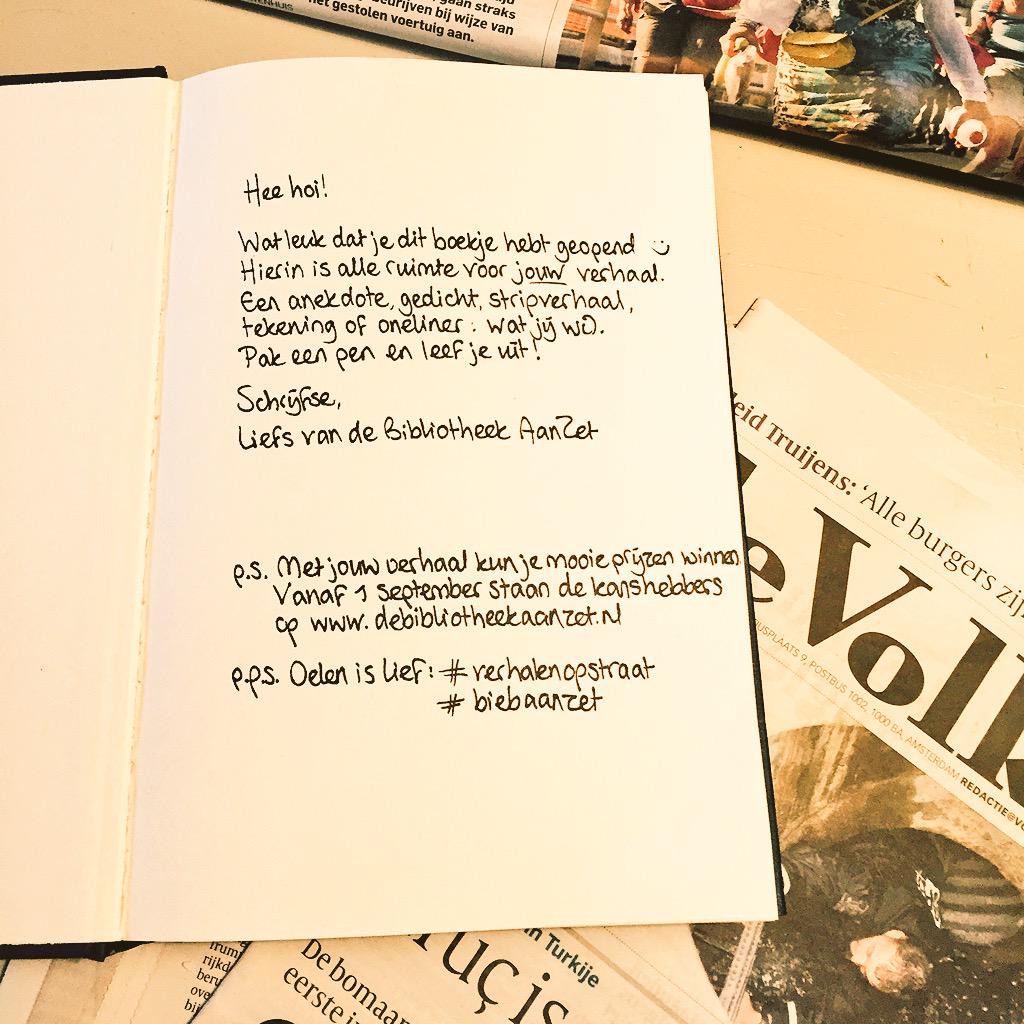 gaan straks
bedrijven bij wijze van
het gestolen voertuig aan.
Hee hoi!
Wat leuk dat je dit boekje hebt geopend
Hierin is alle ruimte voor jouw verhaal.
Een anekdote, gedicht, stripverhaal,
tekening of oneliner: wat jij wil.
Pak een pen en leef je uit!
Schrijfse,
Liefs van de Bibliotheek AanZet
p.s. Met jouw verhaal kun je mooie prijzen winnen.
Vanaf 1 september staan de kanshebbers
op www.debibliotheekaanzet.nl
p.p.s. Delen is lief: # verhalenopstraat
# biebaanzet
eid Truijens: ‘Alle burgers zij
e Volk
USPLAATS 9, POSTBUS 1002, 1000 BA, AMSTERDAM REDACTIE@VO
n Turkije
uç is
De bomaan
eerste i
Trum
rijkd
beru
ove
bij